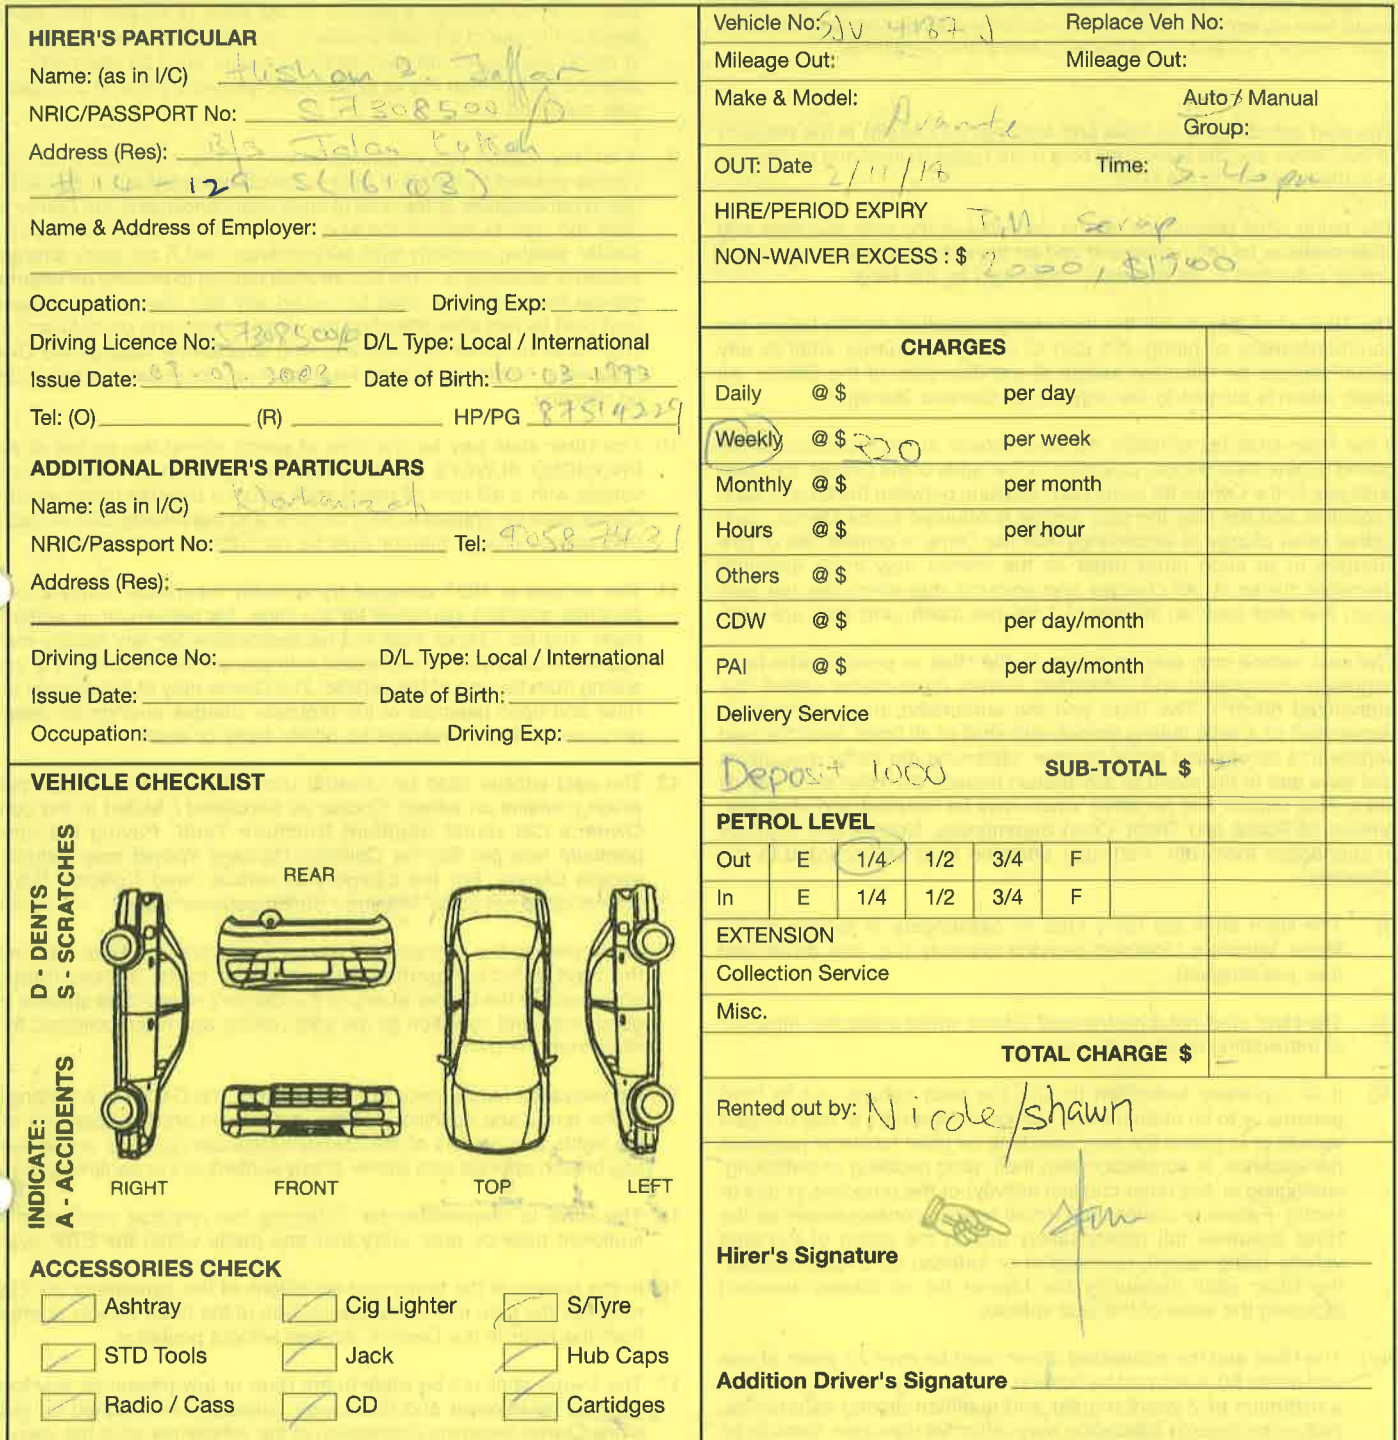 HIRER'S PARTICULAR
Name: (as in I/C) Hisham
NRIC/PASSPORT No: S7308500/D
Address (Res): Blk 3 Jalan Kukoh
#14-129 S(161003)
Name & Address of Employer:
Occupation: Driving Exp:
Driving Licence No: S7308500/D D/L Type: Local / International
Issue Date: 07.07.2003 Date of Birth: 10.03.1973
Tel: (O) (R) HP/PG 87514229
ADDITIONAL DRIVER'S PARTICULARS
Name: (as in I/C)
NRIC/Passport No: Tel: 90587431
Address (Res):
Driving Licence No: D/L Type: Local / International
Issue Date: Date of Birth:
Occupation: Driving Exp:
VEHICLE CHECKLIST
INDICATE: D - DENTS
A - ACCIDENTS S - SCRATCHES
REAR
RIGHT FRONT TOP LEFT
ACCESSORIES CHECK
Ashtray Cig Lighter S/Tyre
STD Tools Jack Hub Caps
Radio / Cass CD Cartidges
Vehicle No: SJV 4187 J Replace Veh No:
Mileage Out: Mileage Out:
Make & Model: Avante Auto / Manual
Group:
OUT: Date 2/11/18 Time: 5.40pm
HIRE/PERIOD EXPIRY Till Scrap
NON-WAIVER EXCESS : $ 2000, $1500
CHARGES
Daily @ $ per day
Weekly @ $ 320 per week
Monthly @ $ per month
Hours @ $ per hour
Others @ $
CDW @ $ per day/month
PAI @ $ per day/month
Delivery Service
Deposit 1000 SUB-TOTAL $
PETROL LEVEL
Out E 1/4 1/2 3/4 F
In E 1/4 1/2 3/4 F
EXTENSION
Collection Service
Misc.
TOTAL CHARGE $
Rented out by: Nicole/shawn
Hirer's Signature
Addition Driver's Signature